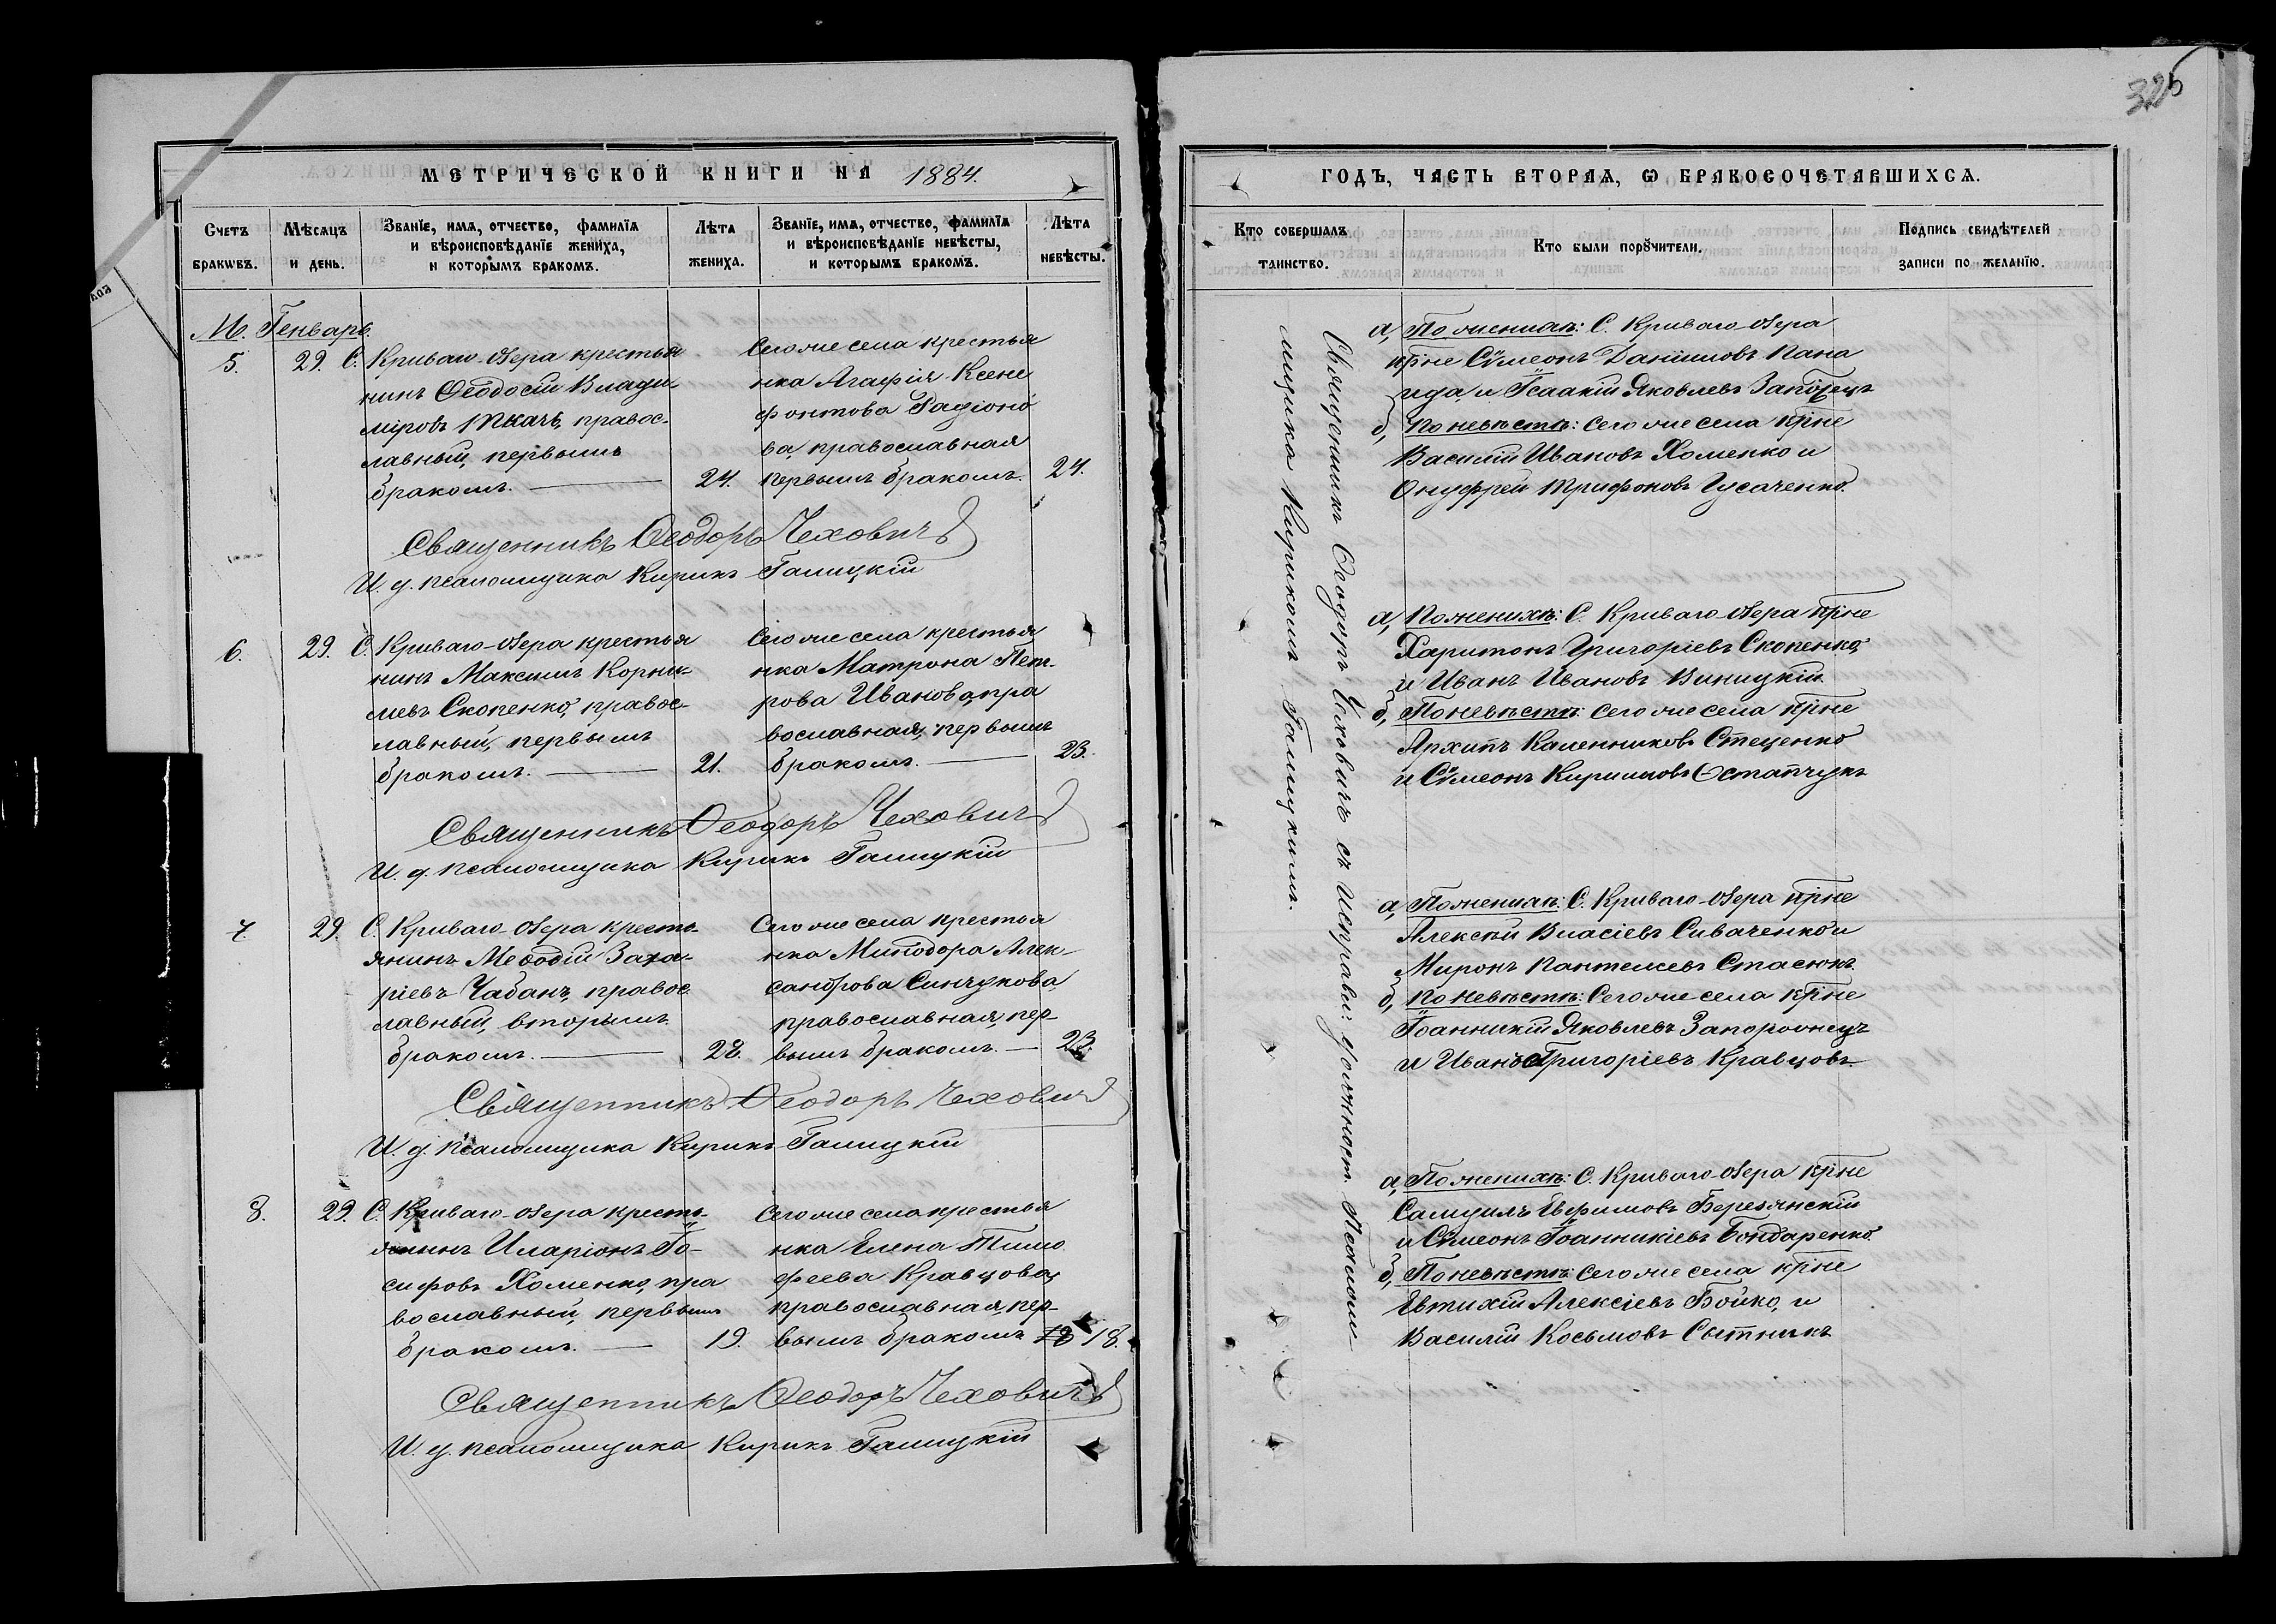 325
МЕТРИЧЕСКОЙ КНИГИ НА 1884.
Счетъ браковъ.
Мѣсяцъ и день.
Званіе, имя, отчество, фамилія и вѣроисповѣданіе жениха, и которымъ бракомъ.
Лѣта жениха.
Званіе, имя, отчество, фамилія и вѣроисповѣданіе невѣсты, и которымъ бракомъ.
Лѣта невѣсты.
М. Генварь.
5. 29. С. Криваго-Озера крестья
нинъ Ѳеодосій Влади-
міровъ Ткачъ, правос-
лавный, первымъ
бракомъ. 24.
Сего же села крестья
нка Агафія Ксене
фонтова Радіоно
ва православная
первымъ бракомъ. 24.
Священникъ Ѳеодоръ Чеховичъ
И. д. псаломщика Кирикъ Галицкій
6. 29. С. Криваго-Озера крестья
нинъ Максимъ Корни-
ліевъ Скопенко, правос-
лавный, первымъ
бракомъ. 21.
Сего же села крестья
нка Матрона Пет-
рова Иванова, пра
вославная, первымъ
бракомъ. 23.
Священникъ Ѳеодоръ Чеховичъ
И. д. псаломщика Кирикъ Галицкій
7. 29. С. Криваго-Озера кресть-
янинъ Меѳодій Заха-
ріевъ Чабанъ, правос
лавный, вторымъ
бракомъ. 28.
Сего же села крестья
нка Минодора Алек-
сандрова Синчукова
православная, пер-
вымъ бракомъ. 23.
Священникъ Ѳеодоръ Чеховичъ
И. д. псаломщика Кирикъ Галицкій
8. 29. С. Криваго-Озера кресть-
янинъ Иларіонъ Іо-
сифовъ Хоменко, пра
вославный, первымъ
бракомъ. 19.
Сего же села крестья
нка Елена Тимо
феева Кравцова,
православная, пер-
вымъ бракомъ 18.
Священникъ Ѳеодоръ Чеховичъ
И. д. псаломщика Кирикъ Галицкій
ГОДЪ, ЧАСТЬ ВТОРАЯ, Ѡ БРАКОСОЧЕТАВШИХСЯ.
Кто совершалъ таинство.
Кто были поручители.
Подпись свидѣтелей записи по желанію.
Священникъ Ѳеодоръ Чеховичъ съ исправл: должност. Псалом-
щика Кирикомъ Галицкимъ.
а, По женихѣ: С. Криваго-Озера
кр̃не Сѵмеонъ Даніиловъ Пана
ида, и Ісаакій Яковлевъ Запорожецъ
б, По невѣстѣ: Сего же села кр̃не
Василій Ивановъ Хоменко и
Онуфрей Трифоновъ Гусаченко.
а, По женихѣ: С. Криваго-Озера кр̃не
Харитонъ Григоріевъ Скопенко,
и Иванъ Ивановъ Виницкій.
б, По невѣстѣ: Сего же села кр̃не
Архипъ Каленниковъ Стеценко
и Сѵмеонъ Кирилловъ Остапчукъ
а, По женихѣ: С. Криваго-Озера кр̃не
Алексѣй Власіевъ Сиваченко и
Миронъ Пантелеевъ Стасюкъ.
б, По невѣстѣ: Сего же села кр̃не
Іоанникій Яковлевъ Запорожецъ
и Иванъ Григоріевъ Кравцовъ.
а, По женихѣ: С. Криваго-Озера кр̃не
Самуилъ Евфимовъ Березянскій
и Сѵмеонъ Іоанникіевъ Бондаренко.
б, По невѣстѣ: Сего же села кр̃не
Евтихій Алексіевъ Бойко, и
Василій Косьмовъ Сытникъ